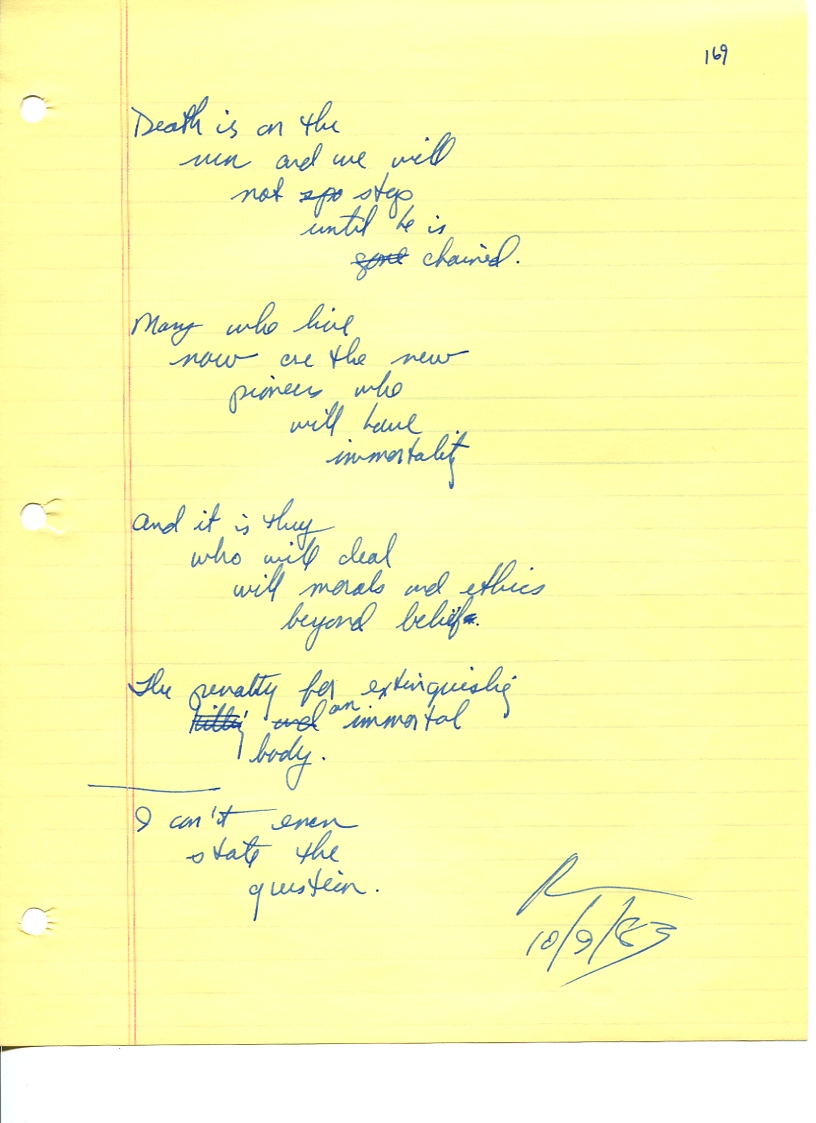 169
Death is on the
run and we will
not spo stop
until he is
gone chained.
Many who live
now are the new
pioneers who
will have
immortality
And it is they
who will deal
will morals and ethics
beyond belief.
The penalty for extinguishing
killing and an immortal
body.
I can't even
state the
question.
R
10/9/83